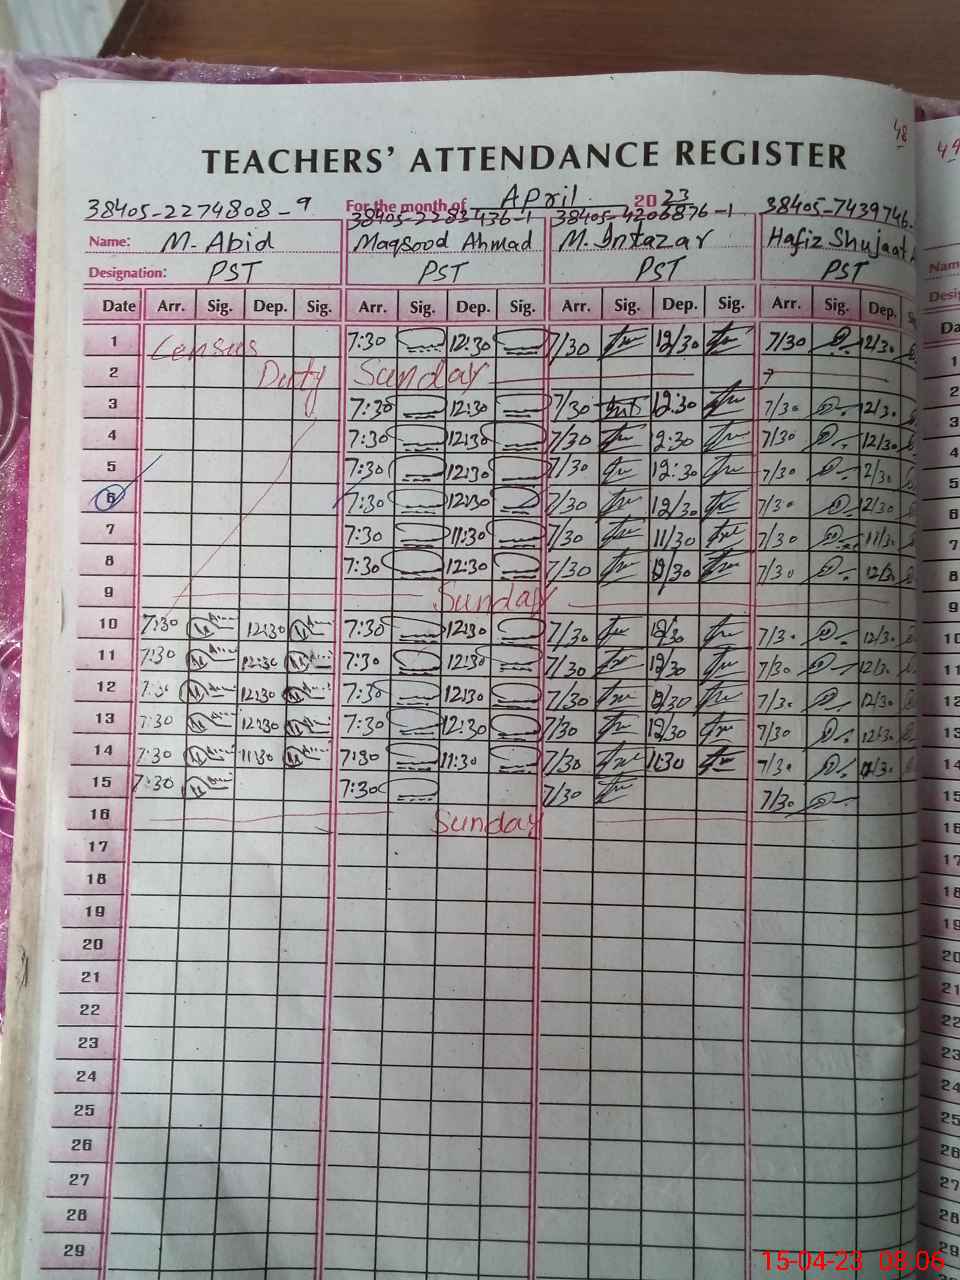 48
49
TEACHERS' ATTENDANCE REGISTER
For the month of April 2023
38405-2274808-9 38405-2283436-1 38405-4206876-1 38405-7439746-
Name: M. Abid Maqsood Ahmad M. Intazar Hafiz Shujaat
Designation: PST PST PST PST
Date Arr. Sig. Dep. Sig. Arr. Sig. Dep. Sig. Arr. Sig. Dep. Sig. Arr. Sig. Dep.
1 Census 7:30 12:30 7/30 12/30 7/30 12/30
2 Duty Sunday
3 7:30 12:30 7/30 12:30 7/30 12/30
4 7:30 12:30 7/30 12:30 7/30 12/30
5 7:30 12:30 7/30 12:30 7/30 12/30
6 7:30 12:30 7/30 12/30 7/30 12/30
7 7:30 11:30 7/30 11/30 7/30 11/30
8 7:30 12:30 7/30 12/30 7/30 12/30
9 Sunday
10 7:30 12:30 7:30 12:30 7/30 12/30 7/30 12/30
11 7:30 12:30 7:30 12:30 7/30 12/30 7/30 12/30
12 7:30 12:30 7:30 12:30 7/30 12/30 7/30 12/30
13 7:30 12:30 7:30 12:30 7/30 12/30 7/30 12:30
14 7:30 11:30 7:30 11:30 7/30 11:30 7/30
15 7:30 7:30 7/30 7/30
16 Sunday
17
18
19
20
21
22
23
24
25
26
27
28
29
15-04-23 08.06